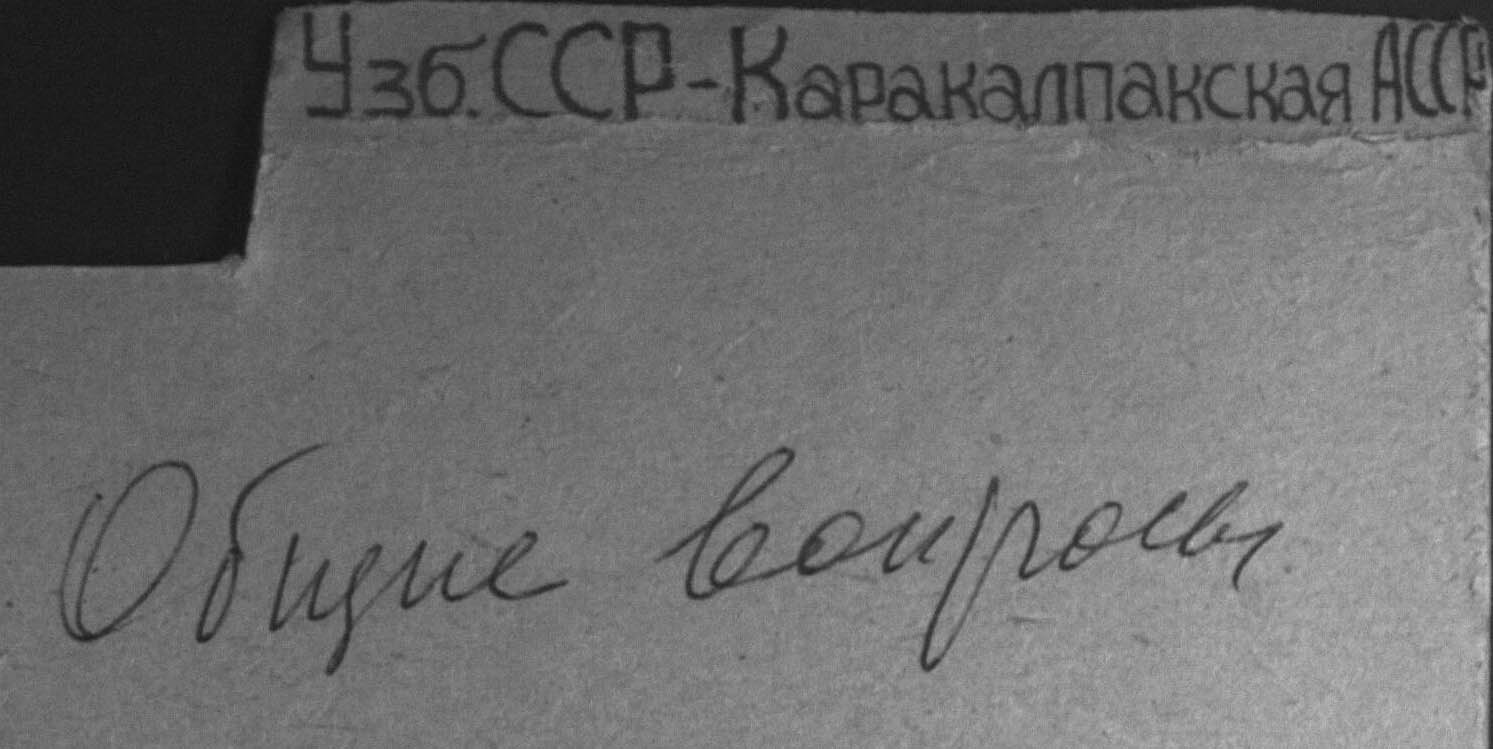 Узб.ССР-Каракалпакская АССР
Общие вопросы